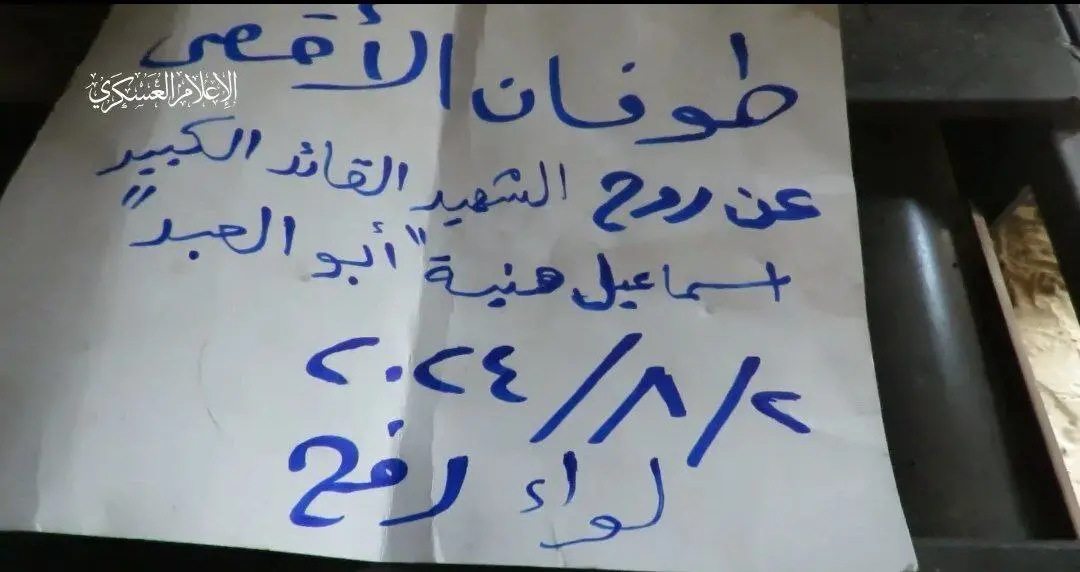 طوفان الأقصى
الإعلام العسكري
عن روح الشهيد القائد الكبير
اسماعيل هنية "أبو العبد"
٢/٨/٢٠٢٤
لواء رفح